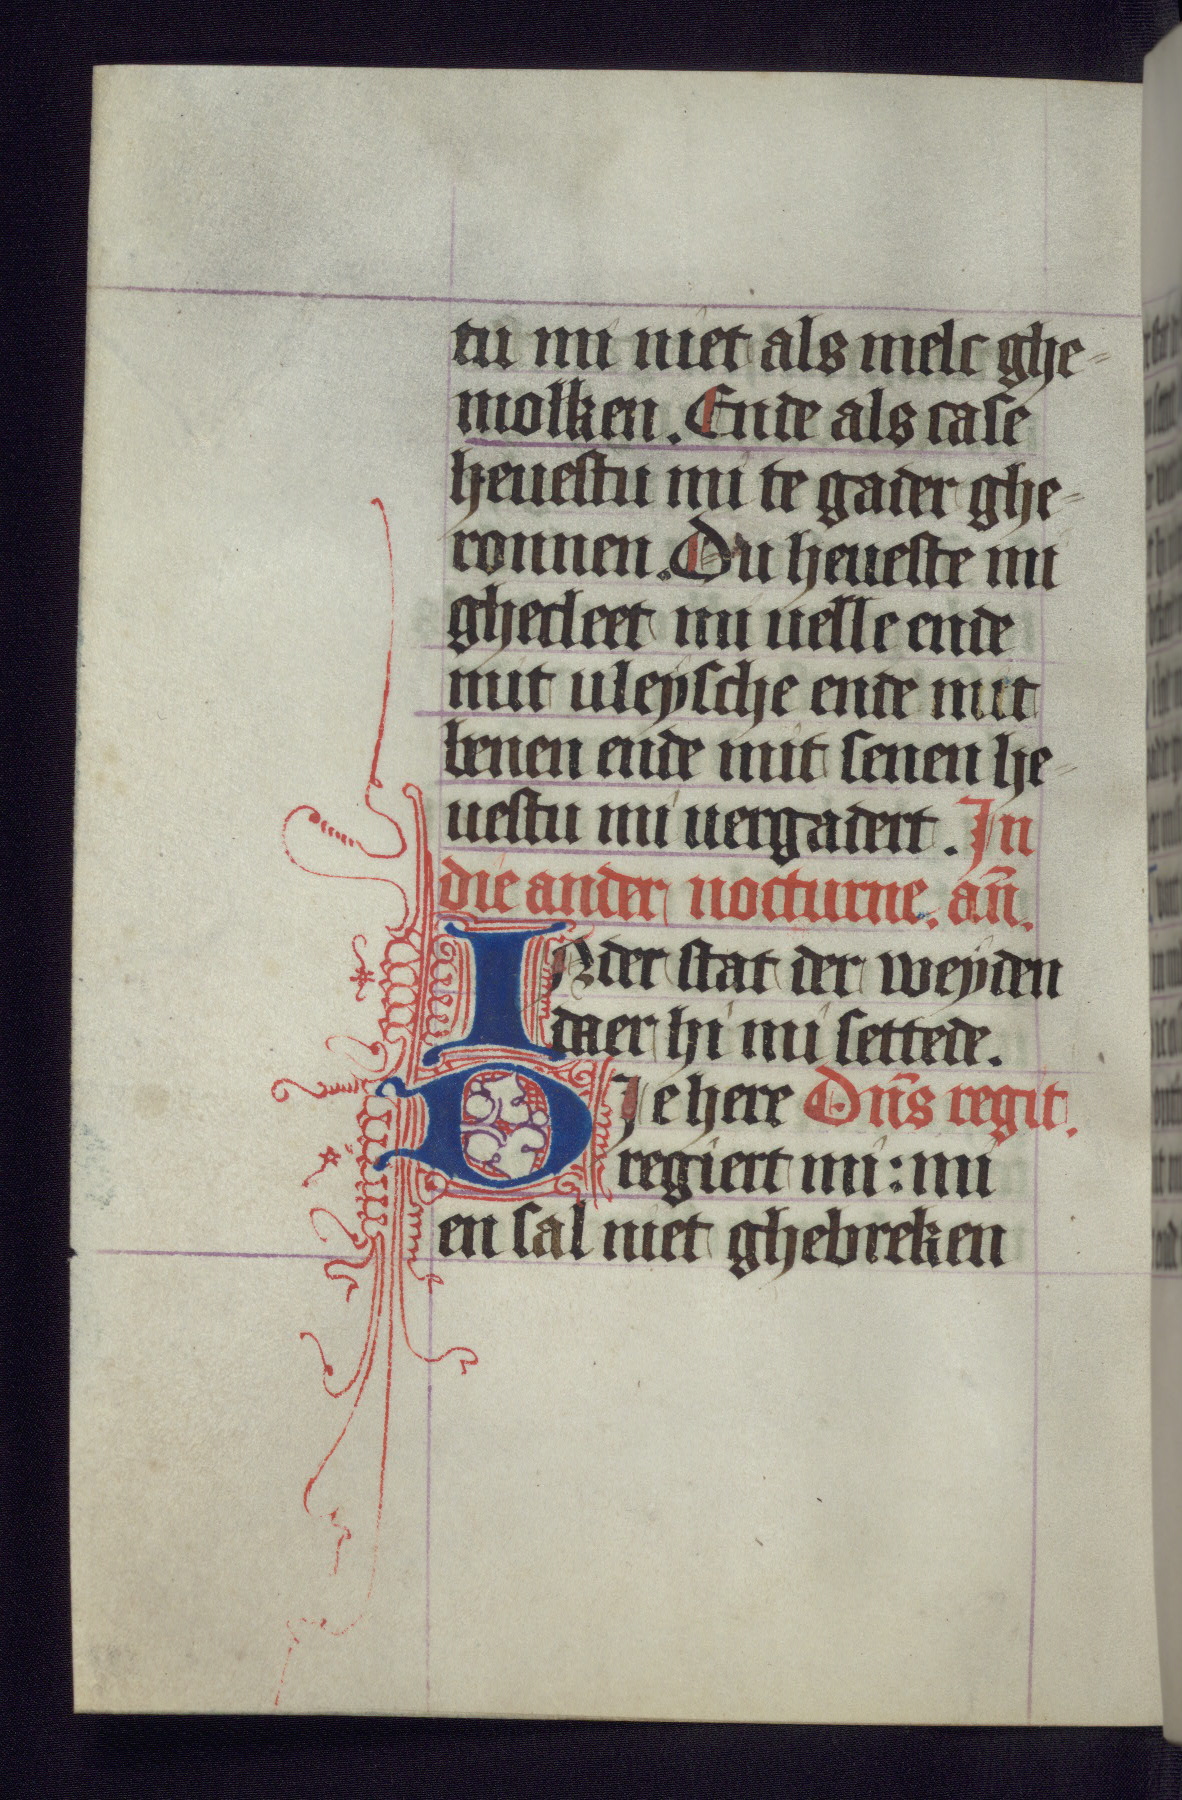 tu mi niet als melc ghe-
molken. Ende als case
heuestu mi te gader ghe-
ronnen. Du heueste mi
ghecleet mi uelle ende
mit uleÿsche ende mit
benen ende mit senen he-
uestu mi uergadert. In
die ander nocturne. an̄.
INder stat der weÿden
daer hi mi settede.
DIe here Dn̄s regit.
regiert mi: mi
en sal niet ghebreken